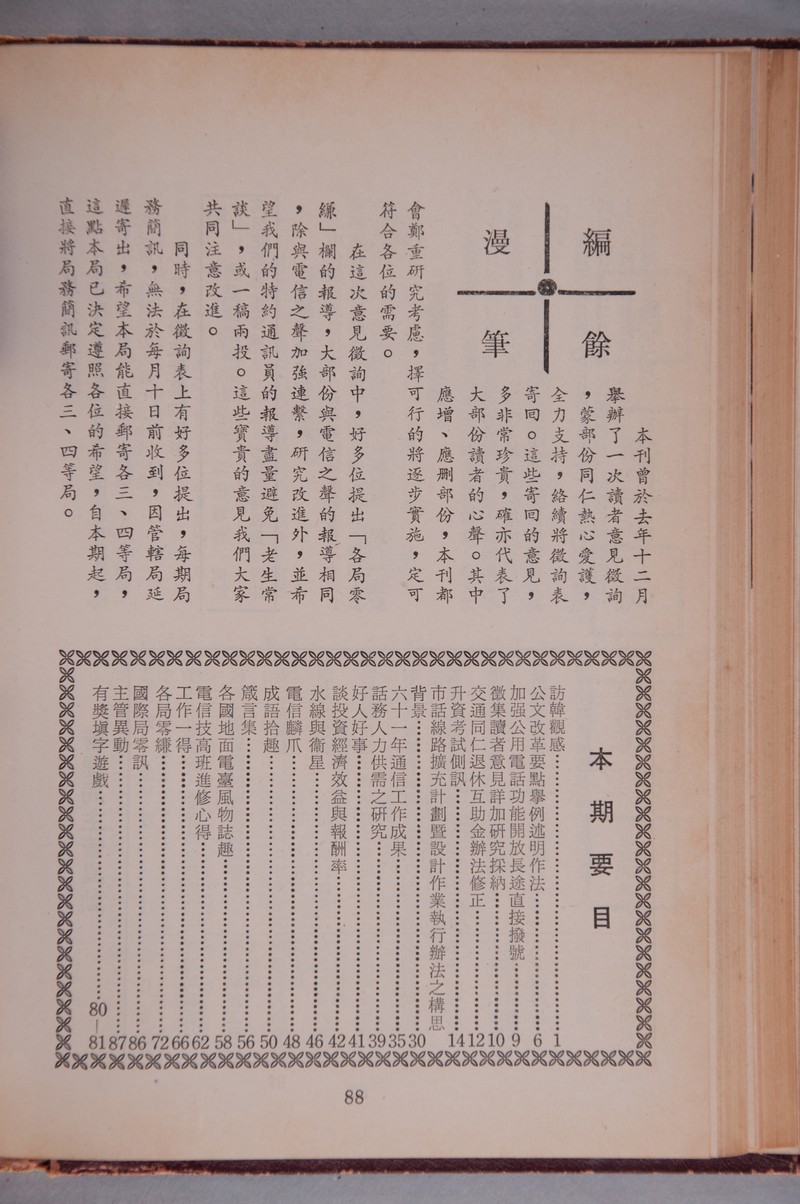 編餘
漫筆
本刊曾於去年十二月
舉辦了一次讀者意見徵詢
，蒙部份同仁熱心愛護，
全力支持，絡續將徵詢表
寄回。這些寄回的意見，
多非常珍貴，確亦代表了
大部份讀者的心聲。其中
應增、應刪部份，本刊都
會鄭重研究考慮，擇可行的將逐步實施，定可
符合各位的需要。
在這次意見徵詢中，好多位提出「各局零
縑」欄的報導，大部份與電信之聲的報導相同
，除與電信之聲加強連繫，研究改進外，並希
望我們的特約通訊員的報導盡量避免「老生常
談」，或一稿兩投。這些寶貴的意見我們大家
共同注意改進。
同時，在徵詢表上有好多位提出，每期局
務簡訊，無法於每月十日前收到，因管轄局延
遲寄出，希望本局能直接郵寄各三、四等局，
這點本局已決定遵照各位的希望，自本期起，
直接將局務簡訊郵寄各三、四等局。
本期要目
訪韓觀感……1
公文改革要點舉例述明作法……6
加强公用電話功能開放長途直接撥號……9
徵集讀者意見詳加研究採納……10
交通同仁退休互助金辦法修正……12
升資考試側訊……14
市話線路擴充計劃暨設計作業執行辦法之構思
背景……30
六十一年通信工作成果……35
話務人力供需之研究……39
好人好事……41
談投資經濟效益與報酬率……42
水線與衞星……46
電信麟爪……48
成語拾趣……50
箴言集……56
各國地面電臺風物誌趣……58
電信技高班進修心得……62
工作一得……66
各局零縑……72
國際局零訊……86
主管異動……87
有獎塡字遊戲……80—81
88